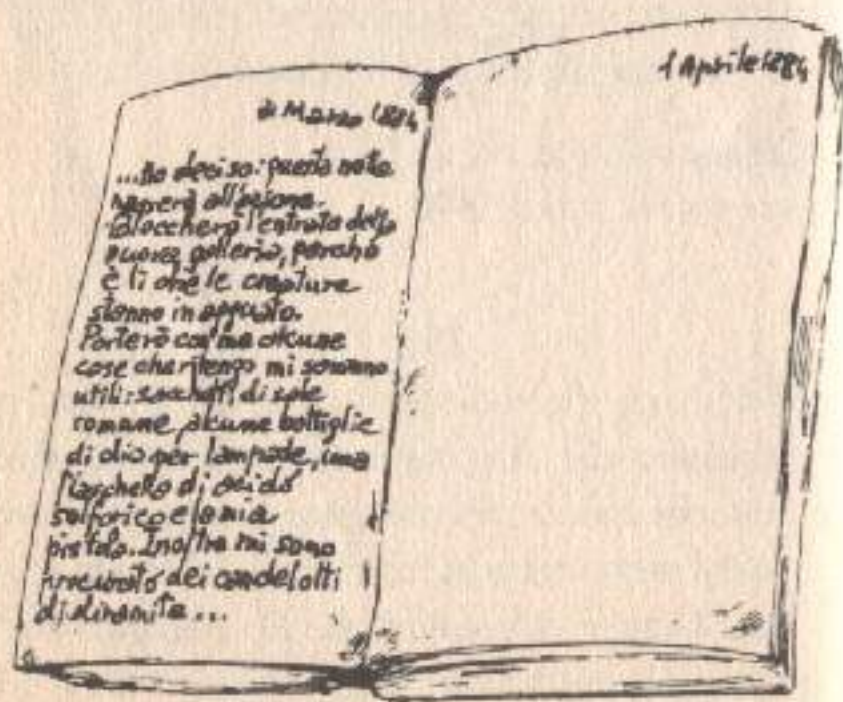 Marzo 1884
...Ho deciso: questa notte
passerò all'azione.
Bloccherò l'entrata della
nuova galleria, perché
è lì che le creature
stanno in agguato.
Porterò con me alcune
cose che ritengo mi saranno
utili: sacchetti di sale
comune, alcune bottiglie
di olio per lampade, una
fiaschetta di acido
solforico e la mia
pistola. Inoltre mi sono
procurato dei candelotti
di dinamite...
1 Aprile 1884